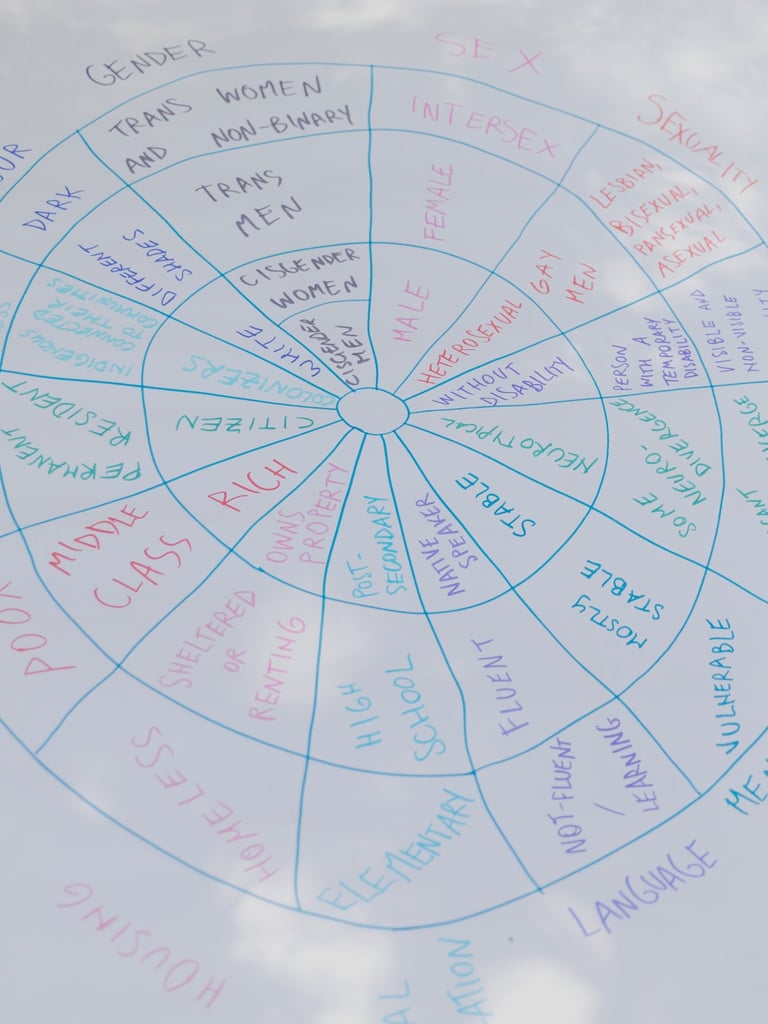 GENDER
SEX
SEXUALITY
TRANS WOMEN
AND NON-BINARY
TRANS
MEN
CISGENDER
WOMEN
CISGENDER
MEN
INTERSEX
FEMALE
MALE
LESBIAN,
BISEXUAL,
PANSEXUAL,
ASEXUAL
GAY
MEN
HETEROSEXUAL
VISIBLE AND
NON-VISIBLE
PERSON
WITH A
TEMPORARY
DISABILITY
WITHOUT
DISABILITY
SOME
NEURO-
DIVERGENCE
NEUROTYPICAL
VULNERABLE
MOSTLY
STABLE
STABLE
LANGUAGE
NOT-FLUENT
/
LEARNING
FLUENT
NATIVE
SPEAKER
ELEMENTARY
HIGH
SCHOOL
POST-
SECONDARY
HOUSING
HOMELESS
SHELTERED
OR
RENTING
OWNS
PROPERTY
POOR
MIDDLE
CLASS
RICH
PERMANENT
RESIDENT
CITIZEN
INDIGENOUS
CONNECTED
TO THEIR
COMMUNITIES
COLONIZERS
DARK
DIFFERENT
SHADES
WHITE